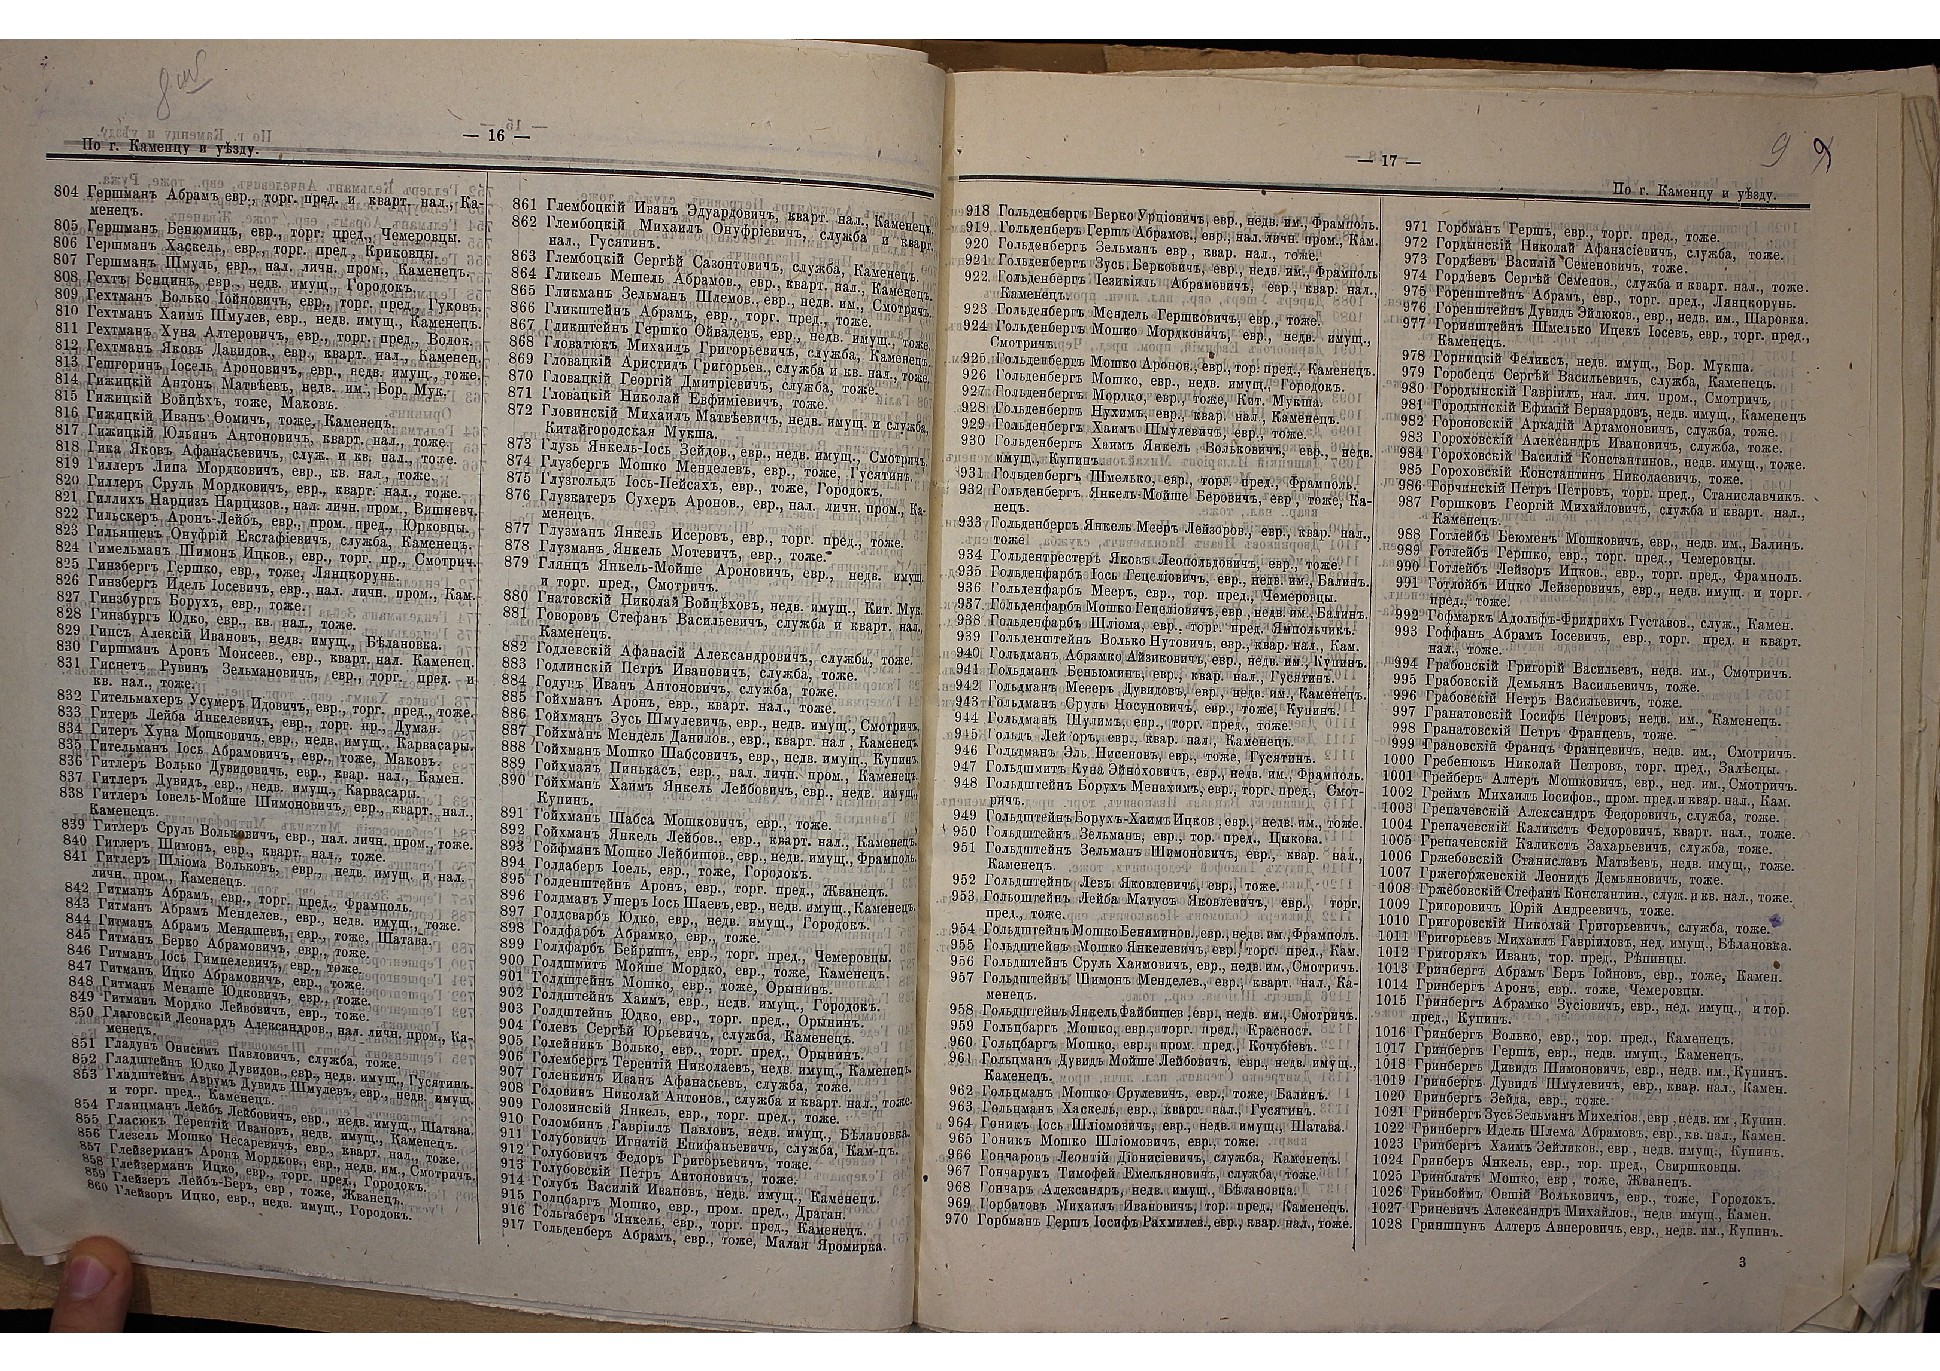 — 16 —
По г. Каменцу и уѣзду.
804 Гершманъ Абрамъ евр., торг. пред. и кварт. нал., Ка-
менецъ.
805 Гершманъ Бенюминъ, евр., торг. пред., Чемеровцы.
806 Гершманъ Хаскель, евр., торг. пред., Криковцы.
807 Гершманъ Шмуль, евр., нал. личн. пром., Каменецъ.
808 Гехтъ Бенцинъ, евр., недв. имущ., Городокъ.
809 Гехтманъ Волько Іойновичъ, евр., торг. пред., Гуковъ.
810 Гехтманъ Хаимъ Шмулев, евр., недв. имущ., Каменецъ.
811 Гехтманъ Хуна Алтеровичъ, евр., торг. пред., Волок.
812 Гехтманъ Яковъ Давидов., евр., кварт. нал., Каменец.
813 Гешгоринъ Іосель Ароновичъ, евр., недв. имущ., тоже.
814 Гижицкій Антонъ Матвѣевъ, недв. им., Бор. Мук.
815 Гижицкій Войцѣхъ, тоже, Маковъ.
816 Гижицкій Иванъ Ѳомичъ, тоже, Каменецъ.
817 Гижицкій Юльянъ Антоновичъ, кварт. нал., тоже.
818 Гика Яковъ Афанасьевичъ, служ. и кв. нал., тоже.
819 Гиллеръ Липа Мордковичъ, евр., кв. нал., тоже.
820 Гиллеръ Сруль Мордковичъ, евр., кварт. нал., тоже.
821 Гиллихъ Нарцизъ Нарцизов., нал. личн. пром., Вишневч.
822 Гильскеръ Аронъ-Лейбъ, евр., пром. пред., Юрковцы.
823 Гильяшевъ Онуфрій Евстафіевичъ, служба, Каменецъ.
824 Гимельманъ Шимонъ Ицков., евр., торг. пр., Смотрич.
825 Гинзбергъ Гершко, евр., тоже, Лянцкорунь.
826 Гинзбергъ Идель Іосевичъ, евр., нал. личн. пром., Кам.
827 Гинзбургъ Борухъ, евр., тоже.
828 Гинзбургъ Юдко, евр., кв. нал., тоже.
829 Гипсъ Алексій Ивановъ, недв. имущ., Бѣлановка.
830 Гиршманъ Аронъ Монсеев., евр., кварт. нал. Каменец.
831 Гиснетъ Рувин Зельмановичъ, евр., торг. пред. и
кв. нал., тоже.
832 Гительмахеръ Усумеръ Идовичъ, евр., торг. пред., тоже.
833 Гитеръ Лейба Янкелевичъ, евр., торг. пр., Думан.
834 Гитеръ Хуна Мошковичъ, евр., недв. имущ., Карвасары.
835 Гительманъ Іось Абрамовичъ, евр., тоже, Маковъ.
836 Гитлеръ Волько Дувидовичъ, евр., квар. нал., Камен.
837 Гитлеръ Дувидъ, евр., недв. имущ., Карвасары.
838 Гитлеръ Іовель-Мойше Шимоновичъ, евр., кварт. нал.,
Каменецъ.
839 Гитлеръ Сруль Вольковичъ, евр., нал. личн. пром., тоже.
840 Гитлеръ Шимонъ, евр., кварт. нал., тоже.
841 Гитлеръ Шліома Вольков., евр., недв. имущ. и нал.
личн. пром., Каменецъ.
842 Гитманъ Абрамъ, евр., торг. пред., Фрамполь.
843 Гитманъ Абрамъ Менделев., евр., недв. имущ., тоже.
844 Гитманъ Абрамъ Менашевъ, евр., тоже, Шатава.
845 Гитманъ Берко Абрамовичъ, евр., тоже.
846 Гитманъ Іось Гимпелевичъ, евр., тоже.
847 Гитманъ Ицко Абрамовичъ, евр., тоже.
848 Гитманъ Менаше Юдковичъ, евр., тоже.
849 Гитманъ Мордко Лейвовичъ, евр., тоже.
850 Глаговскій Леонардъ Александров., нал. личн. пром., Ка-
менецъ.
851 Гладунъ Онисимъ Павловичъ, служба, тоже.
852 Гладштейнъ Юдко Дувидов., евр., недв. имущ., Гусятинъ.
853 Гладштейнъ Аврумъ Дувидъ Шмулевъ, евр., недв. имущ.
и торг. пред., Каменецъ.
854 Гланцманъ Лейбъ Лейбовичъ, евр., недв. имущ., Шатава.
855 Гласюкъ Терентій Ивановъ, недв. имущ., Каменецъ.
856 Глезель Мошко Несаревичъ, евр., кварт. нал., тоже.
857 Глейзерманъ Аронъ Мордков., евр., недв. им., Смотричъ.
858 Глейзерманъ Ицко, евр., торг. пред., Городокъ.
859 Глейзеръ Лейбъ-Беръ, евр., тоже, Жванецъ.
860 Глейзоръ Ицко, евр., недв. имущ., Городокъ.
861 Глембоцкій Иванъ Эдуардовичъ, кварт. нал., Каменецъ.
862 Глембоцкій Михаилъ Онуфріевичъ, служба и кварт.
нал., Гусятинъ.
863 Глембоцкій Сергѣй Сазонтовичъ, служба, Каменецъ.
864 Гликель Мешель Абрамов., евр., кварт. нал., Каменецъ.
865 Гликманъ Зельманъ Шлемов., евр., недв. им., Смотричъ.
866 Гликштейнъ Абрамъ, евр., торг. пред., тоже.
867 Гликштейнъ Гершко Ойвалев., евр., недв. имущ., тоже.
868 Головатюкъ Михаилъ Григорьевичъ, служба, Каменецъ.
869 Гловацкій Аристидъ Григорьен., служба и кв. нал., тоже.
870 Гловацкій Георгій Дмитріевичъ, служба, тоже.
871 Гловацкій Николай Евфиміевичъ, тоже.
872 Гловинскій Михаилъ Матвѣевичъ, недв. имущ. и служба,
Китайгородская Мукша.
873 Глузь Янкель-Іось Зейдов., евр., недв. имущ., Смотричъ.
874 Глузбергъ Мошко Менделевъ, евр., тоже, Гусятинъ.
875 Глузгольдъ Іось-Пейсахъ, евр., тоже, Городокъ.
876 Глузкатеръ Сухеръ Аронов., евр., нал. личн. пром., Ка-
менецъ.
877 Глузманъ Янкель Исеровъ, евр., торг. пред., тоже.
878 Глузманъ Янкель Мотевичъ, евр., тоже.
879 Глянцъ Янкель-Мойше Ароновичъ, евр., недв. имущ.
и торг. пред., Смотричъ.
880 Гнатовскій Николай Войцѣховъ, недв. имущ., Кит. Мук.
881 Говоровъ Стефанъ Васильевичъ, служба и кварт. нал.,
Каменецъ.
882 Годлевскій Афанасій Александровичъ, служба, тоже.
883 Годлинскій Петръ Ивановичъ, служба, тоже.
884 Годунъ Иванъ Антоновичъ, служба, тоже.
885 Гойхманъ Аронъ, евр., кварт. нал., тоже.
886 Гойхманъ Зусь Шмулевичъ, евр., недв. имущ., Смотричъ.
887 Гойхманъ Мендель Данилов., евр., кварт. нал., Каменецъ
888 Гойхманъ Мошко Шабсовичъ, евр., недв. имущ., Купинъ.
889 Гойхманъ Пинькасъ, евр., нал. личн. пром., Каменецъ.
890 Гойхманъ Хаимъ Янкель Лейбовичъ, евр., недв. имущ.,
Купинъ.
891 Гойхманъ Шабса Мошковичъ, евр., тоже.
892 Гойхманъ Янкель Лейбов., евр., кварт. нал., Каменецъ.
893 Гойфманъ Мошко Лейбишов., евр., недв. имущ., Фрамполь.
894 Голдаберъ Іоель, евр., тоже, Городокъ.
895 Голденштейнъ Аронъ, евр., торг. пред., Жванецъ.
896 Голдманъ Ушеръ Іось Шаевъ, евр., недв. имущ., Каменецъ.
897 Голдсварбъ Юдко, евр., недв. имущ., Городокъ.
898 Голдфарбъ Абрамко, евр., тоже.
899 Голдфарбъ Бейришъ, евр., торг. пред., Чемеровцы.
900 Голдшмитъ Мойше Мордко, евр., тоже, Каменецъ.
901 Голдштейнъ Мошко, евр., тоже, Орынинъ.
902 Голдштейнъ Хаимъ, евр., недв. имущ., Городокъ.
903 Голдштейнъ Юдко, евр., торг. пред., Орынинъ.
904 Голевъ Сергѣй Юрьевичъ, служба, Каменецъ.
905 Голейникъ Волько, евр., торг. пред., Орынинъ.
906 Голембергъ Терентій Николаев., недв. имущ., Каменець
907 Голенкинъ Иванъ Афанасьев., служба, тоже.
908 Головинъ Николай Антонов., служба и кварт. нал., тоже.
909 Головинскій Янкель, евр., торг. пред., тоже.
910 Голомбинъ Гавріилъ Павловъ, недв. имущ., Бѣлановка.
911 Голубовичъ Игнатій Епифаньевичъ, служба, Кам-цъ.
912 Голубовичъ Федоръ Григорьевичъ, тоже.
913 Голубовскій Петръ Антоновичъ, тоже.
914 Голубъ Василій Ивановъ, недв. имущ., Каменецъ.
915 Голцбаргъ Мошко, евр., пром. пред., Драган.
916 Гольгаберъ Янкель, евр., торг. пред., Каменецъ.
917 Гольденберъ Абрамъ, евр., тоже, Малая Яромирка.
— 17 —
По г. Каменцу и уѣзду.
918 Гольденбергъ Берко Урціовичъ, евр., недв. им., Фрамполь.
919 Гольденбергъ Гершъ Абрамов., евр., нал. личн. пром., Кам.
920 Гольденбергъ Зельманъ евр., квар. нал., тоже.
921 Гольденбергъ Зусь. Берковичъ, евр., недв. им., Фрамполь
922 Гольденбергъ Іезикіиль Абрамовичъ, евр., квар. нал.,
Каменецъ.
923 Гольденбергъ Мендель Гершковичъ, евр., тоже.
924 Гольденбергъ Мошко Мордковичъ, евр., недв. имущ.,
Смотричъ.
925 Гольденбергъ Мошко Аронов., евр., тор. пред., Каменецъ.
926 Гольденбергъ Мошко, евр., недв. имущ., Городокъ.
927 Гольденбергъ Морлко, евр., тоже, Кит. Мукша.
928 Гольденбергъ Нухимъ, евр., квар. нал., Каменецъ.
929 Гольденбергъ Хаимъ Шмулевичъ, евр., тоже.
930 Гольденбергъ Хаим Янкель Вольковичъ, евр., недв.
имущ., Купинъ.
931 Гольденбергъ Шмелько, евр., торг. пред., Фрамполь.
932 Гольденбергъ. Янкель-Мойше Беровичъ, евр, тоже, Ка-
нецъ.
933 Гольденбергъ Янкель Мееръ Лейзоров., евр., квар. нал.,
тоже
934 Гольдентрестеръ Яковъ Леопольдовичъ, евр., тоже.
935 Гольденфарбъ Іось Гецеліовичъ, евр., недв. им., Балинъ.
936 Гольденфарбъ Мееръ, евр., тор. пред., Чемеровцы.
937 Гольденфарбъ Мошко Гецеліовичъ, евр, недв. им., Балинъ.
938 Гольденфарбъ Шліома, евр., торг. пред. Ямпольчикъ.
939 Гольденштейнъ Волько Нутовичъ, евр., квар. нал., Кам.
940 Гольдманъ Абрамко Айзиковичъ, евр., недв. им., Купинъ.
941 Гольдман Беньюминъ, евр., квар. нал., Гусятинъ.
942 Гольдманъ Мееерь Дувидовъ, евр., недв. им., Каменецъ.
943 Гольдманъ Сруль Носуновичъ, евр., тоже, Купинъ.
944 Гольдманъ Шулимъ, евр., торг. пред., тоже.
945 Гольдъ Лей оръ, евр., квар. нал., Каменецъ.
946 Гольтманъ Эль Нисеновъ, евр., тоже, Гусятинъ.
947 Гольдшмитъ Куна Эйноховичъ, евр., недв. им., Фрамполь.
948 Гольдштейнъ Борухъ Менахимъ, евр., торг. пред., Смот-
ричъ.
949 Гольдштейнъ Борухъ-Хаимъ Ицков, евр., недв. им., тоже.
950 Гольдштейнъ Зельманъ, евр., тор. пред., Цыкова.
951 Гольдштейнъ Зельманъ Шимоновичъ, евр., квар. нал.,
Каменецъ.
952 Гольдштейнъ Левъ Яковлевичъ, евр., тоже.
953 Гольоштейнъ Лейба Матусъ Яковлевичъ, евр., торг.
пред., тоже.
954 Гольдштейнъ Мошко Беняминов., евр., недв. им., Фрамполь.
955 Гольдштейнъ Мошко Янкелевичъ, евр., торг. пред., Кам.
956 Гольдштейнъ Сруль Хаимовичъ, евр., недв. им., Смотричъ.
957 Гольдштейнъ Шимонъ Менделев., евр., кварт. нал., Ка-
менецъ.
958 Гольдштейнъ Янкель Файбишев, евр., недв. им., Смотричъ.
959 Гольцбаргъ Мошко, евр., торг. пред., Красност.
960 Гольцбаргъ Мошко, евр., пром. пред., Кочубіевъ.
961 Гольцманъ Дувидъ Мойше Лейбовичъ, евр., недв. имущ.,
Каменецъ.
962 Гольцманъ Мошко Срулевичъ, евр., тоже, Балинъ.
963 Гольцманъ Хаскель, евр., кварт. нал., Гусятинъ.
964 Гоникъ Іось Шліомовичъ, евр., недв. имущ., Шатава.
965 Гоникъ Мошко Шліомовичъ, евр., тоже.
966 Гончаровъ Леонтій Діонисіевичъ, служба, Каменецъ.
967 Гончарукъ Тимофей Емельяновичъ, служба, тоже.
968 Гончаръ Александръ, недв. имущ., Бѣлановка.
969 Горбатовъ Михаилъ Ивановичъ, тор. пред., Каменецъ.
970 Горбманъ Гершъ Іосифъ Рахмилев., евр., квар. нал., тоже.
971 Горбманъ Гершъ, евр., торг. пред., тоже.
972 Гордынскій Николай Афанасіевичъ, служба, тоже.
973 Гордѣевъ Василій Семеновичъ, тоже.
974 Гордѣевъ Сергѣй Семенов., служба и кварт. нал., тоже.
975 Горенштейнъ Абрамъ, евр., торг. пред., Лянцкорунь.
976 Горенштейнъ Дувидъ Эйдюков., евр., недв. им., Шаровка.
977 Горинштейнъ Шмелько Ицекъ Іосевъ, евр., торг. пред.,
Каменецъ.
978 Горницкій Феликсъ, недв. имущ., Бор. Мукша.
979 Горобецъ Сергѣй Васильевичъ, служба, Каменецъ.
980 Городынскій Гавріилъ, нал. лич. пром., Смотричъ,
981 Городынскій Ефимій Бернардов., недв. имущ., Каменецъ
982 Гороновскій Аркадій Артамоновичъ, служба, тоже.
983 Гороховскій Александръ Ивановичъ, служба, тоже.
984 Гороховскій Василій Константинов., недв. имущ., тоже.
985 Гороховскій Константинъ Николаевичъ, тоже.
986 Горчинскій Петръ Петровъ, торг. пред., Станиславчикъ.
987 Горшковъ Георгій Михайловичъ, служба и кварт. нал.,
Каменецъ.
988 Готлейбъ Беюменъ Мошковичъ, евр., недв. им., Балинъ.
989 Готлейбъ Гершко, евр., торг. пред., Чемеровцы.
990 Готлейбъ Лейзоръ Ицков., евр., торг. пред., Фрамполь.
991 Готлойбъ Ицко Лейзеровичъ, евр., недв. имущ. и торг.
пред., тоже.
992 Гофмаркъ Адольфъ-Фридрихъ Густавов., служ., Камен.
993 Гоффанъ Абрамъ Іосевичъ, евр., торг. пред. и кварт.
нал., тоже.
994 Грабовскій Григорій Васильев., недв. им., Смотричъ.
995 Грабовскій Демьянъ Васильевичъ, тоже.
996 Грабовскій Петръ Васильевичъ, тоже.
997 Гранатовскій Іосифъ Петровъ, недв. им., Каменецъ.
998 Гранатовскій Петръ Францев., тоже.
999 Грановскій Францъ Францевичъ, недв. им., Смотричъ.
1000 Гребенюкъ Николай Петровъ, торг. пред., Залѣсцы.
1001 Грейберъ Алтеръ Мошковичъ, евр., нед. им., Смотричъ.
1002 Греймъ Михаилъ Іосифов., пром. пред. и квар. нал., Кам.
1003 Грепачевскій Александръ Федоровичъ, служба, тоже.
1004 Грепачевскій Каликстъ Федоровичъ, кварт. нал., тоже.
1005 Грепачевскій Каликстъ Захарьевичъ, служба, тоже.
1006 Гржебовскій Станиславъ Матвѣевъ, недв. имущ., тоже.
1007 Гржегоржевскій Леонидъ Демьяновичъ, тоже.
1008 Гржебовскій Стефанъ Константин., служ. и кв. нал., тоже.
1009 Григоровичъ Юрій Андреевичъ, тоже.
1010 Григоровскій Николай Григорьевичъ, служба, тоже.
1011 Григорьевъ Михаилъ Гавріиловъ, нед. имущ., Бѣлановка.
1012 Григорякъ Иванъ, тор. пред., Рѣпинцы.
1013 Гринбергъ Абрамъ Беръ Іойновъ, евр., тоже, Камен.
1014 Гринбергъ Аронъ, евр.. тоже, Чемеровцы.
1015 Гринбергъ Абрамко Зусіовичъ, евр., нед. имущ., и тор.
пред., Купинъ.
1016 Гринбергъ Волько, евр., тор. пред., Каменецъ.
1017 Гринбергъ Гершъ, евр., недв. имущ., Каменецъ.
1018 Гринбергъ Дивидъ Шимоновичъ, евр., недв. им., Купинъ.
1019 Гринбергъ Дувидъ Шмулевичъ, евр., квар. нал., Камен.
1020 Гринбергъ Зейда, евр., тоже.
1021 Гринбергъ Зусь Зельманъ Михеліов., евр, недв. им., Купин.
1022 Гринбергъ Идель Шлема Абрамовъ, евр., кв. нал., Камен.
1023 Гринбергъ Хаимъ Зейликов., евр, недв. имущ., Купинъ.
1024 Гринберъ Янкель, евр., тор. пред., Свиршковцы.
1025 Гринблатъ Мошко, евр, тоже, Жванецъ.
1026 Гринбоймъ Овшій Вольковичъ, евр., тоже, Городокъ.
1027 Гриневичъ Александръ Михайлов., недв. имущ., Камен.
1028 Гриншпунъ Алтеръ Авнеровичъ, евр., недв. им., Купинъ.
3